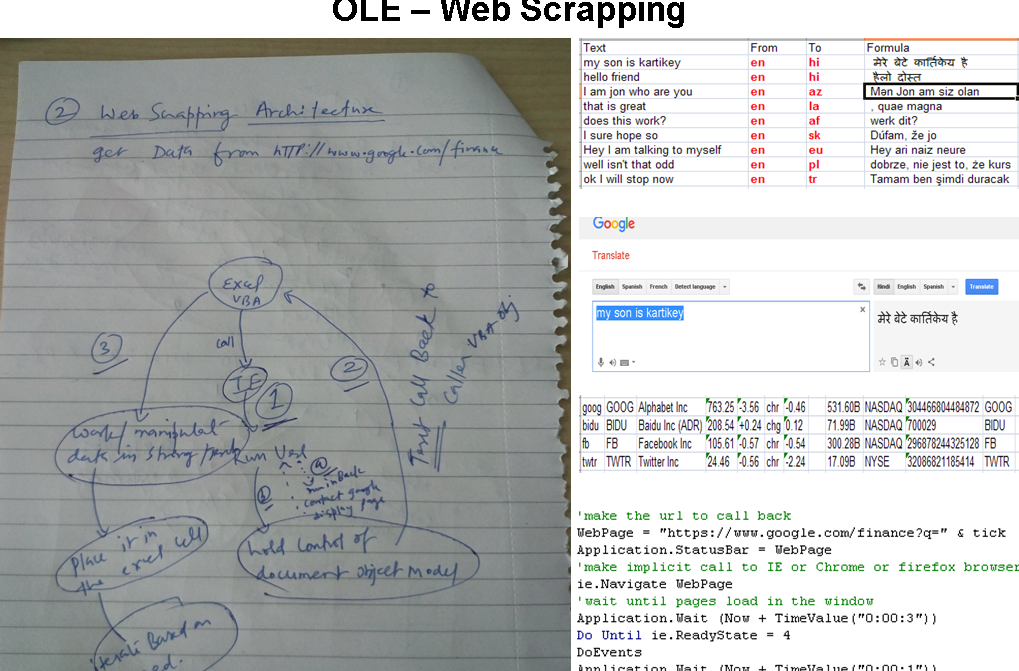 OLE – Web Scrapping
② Web Scrapping Architecture
get Data from http://www.google.com/finance
Excel
VBA
call
IE
①
②
③
Call Back to
Caller VBA obj.
work/manipulat
data in string
Run
ⓐ
run in Back
contact google
display page
ⓑ
hold control of
document object Model
place it in
the excel cell
iterate Based on
Text From To Formula
my son is kartikey en hi मेरे बेटे कार्तिकेय है
hello friend en hi हैलो दोस्त
I am jon who are you en az Mən Jon am siz olan
that is great en la , quae magna
does this work? en af werk dit?
I sure hope so en sk Dúfam, že jo
Hey I am talking to myself en eu Hey ari naiz neure
well isn't that odd en pl dobrze, nie jest to, że kurs
ok I will stop now en tr Tamam ben şimdi duracak
Google
Translate
English Spanish French Detect language Hindi English Spanish Translate
my son is kartikey x मेरे बेटे कार्तिकेय है
goog GOOG Alphabet Inc 763.25 -3.56 chr -0.46 531.60B NASDAQ 304466804484872 GOOG
bidu BIDU Baidu Inc (ADR) 208.54 +0.24 chg 0.12 71.99B NASDAQ 700029 BIDU
fb FB Facebook Inc 105.61 -0.57 chr -0.54 300.28B NASDAQ 296878244325128 FB
twtr TWTR Twitter Inc 24.46 -0.56 chr -2.24 17.09B NYSE 32086821185414 TWTR
'make the url to call back
WebPage = "https://www.google.com/finance?q=" & tick
Application.StatusBar = WebPage
'make implicit call to IE or Chrome or firefox browser
ie.Navigate WebPage
'wait until pages load in the window
Application.Wait (Now + TimeValue("0:00:3"))
Do Until ie.ReadyState = 4
DoEvents
Application.Wait (Now + TimeValue("0:00:1"))